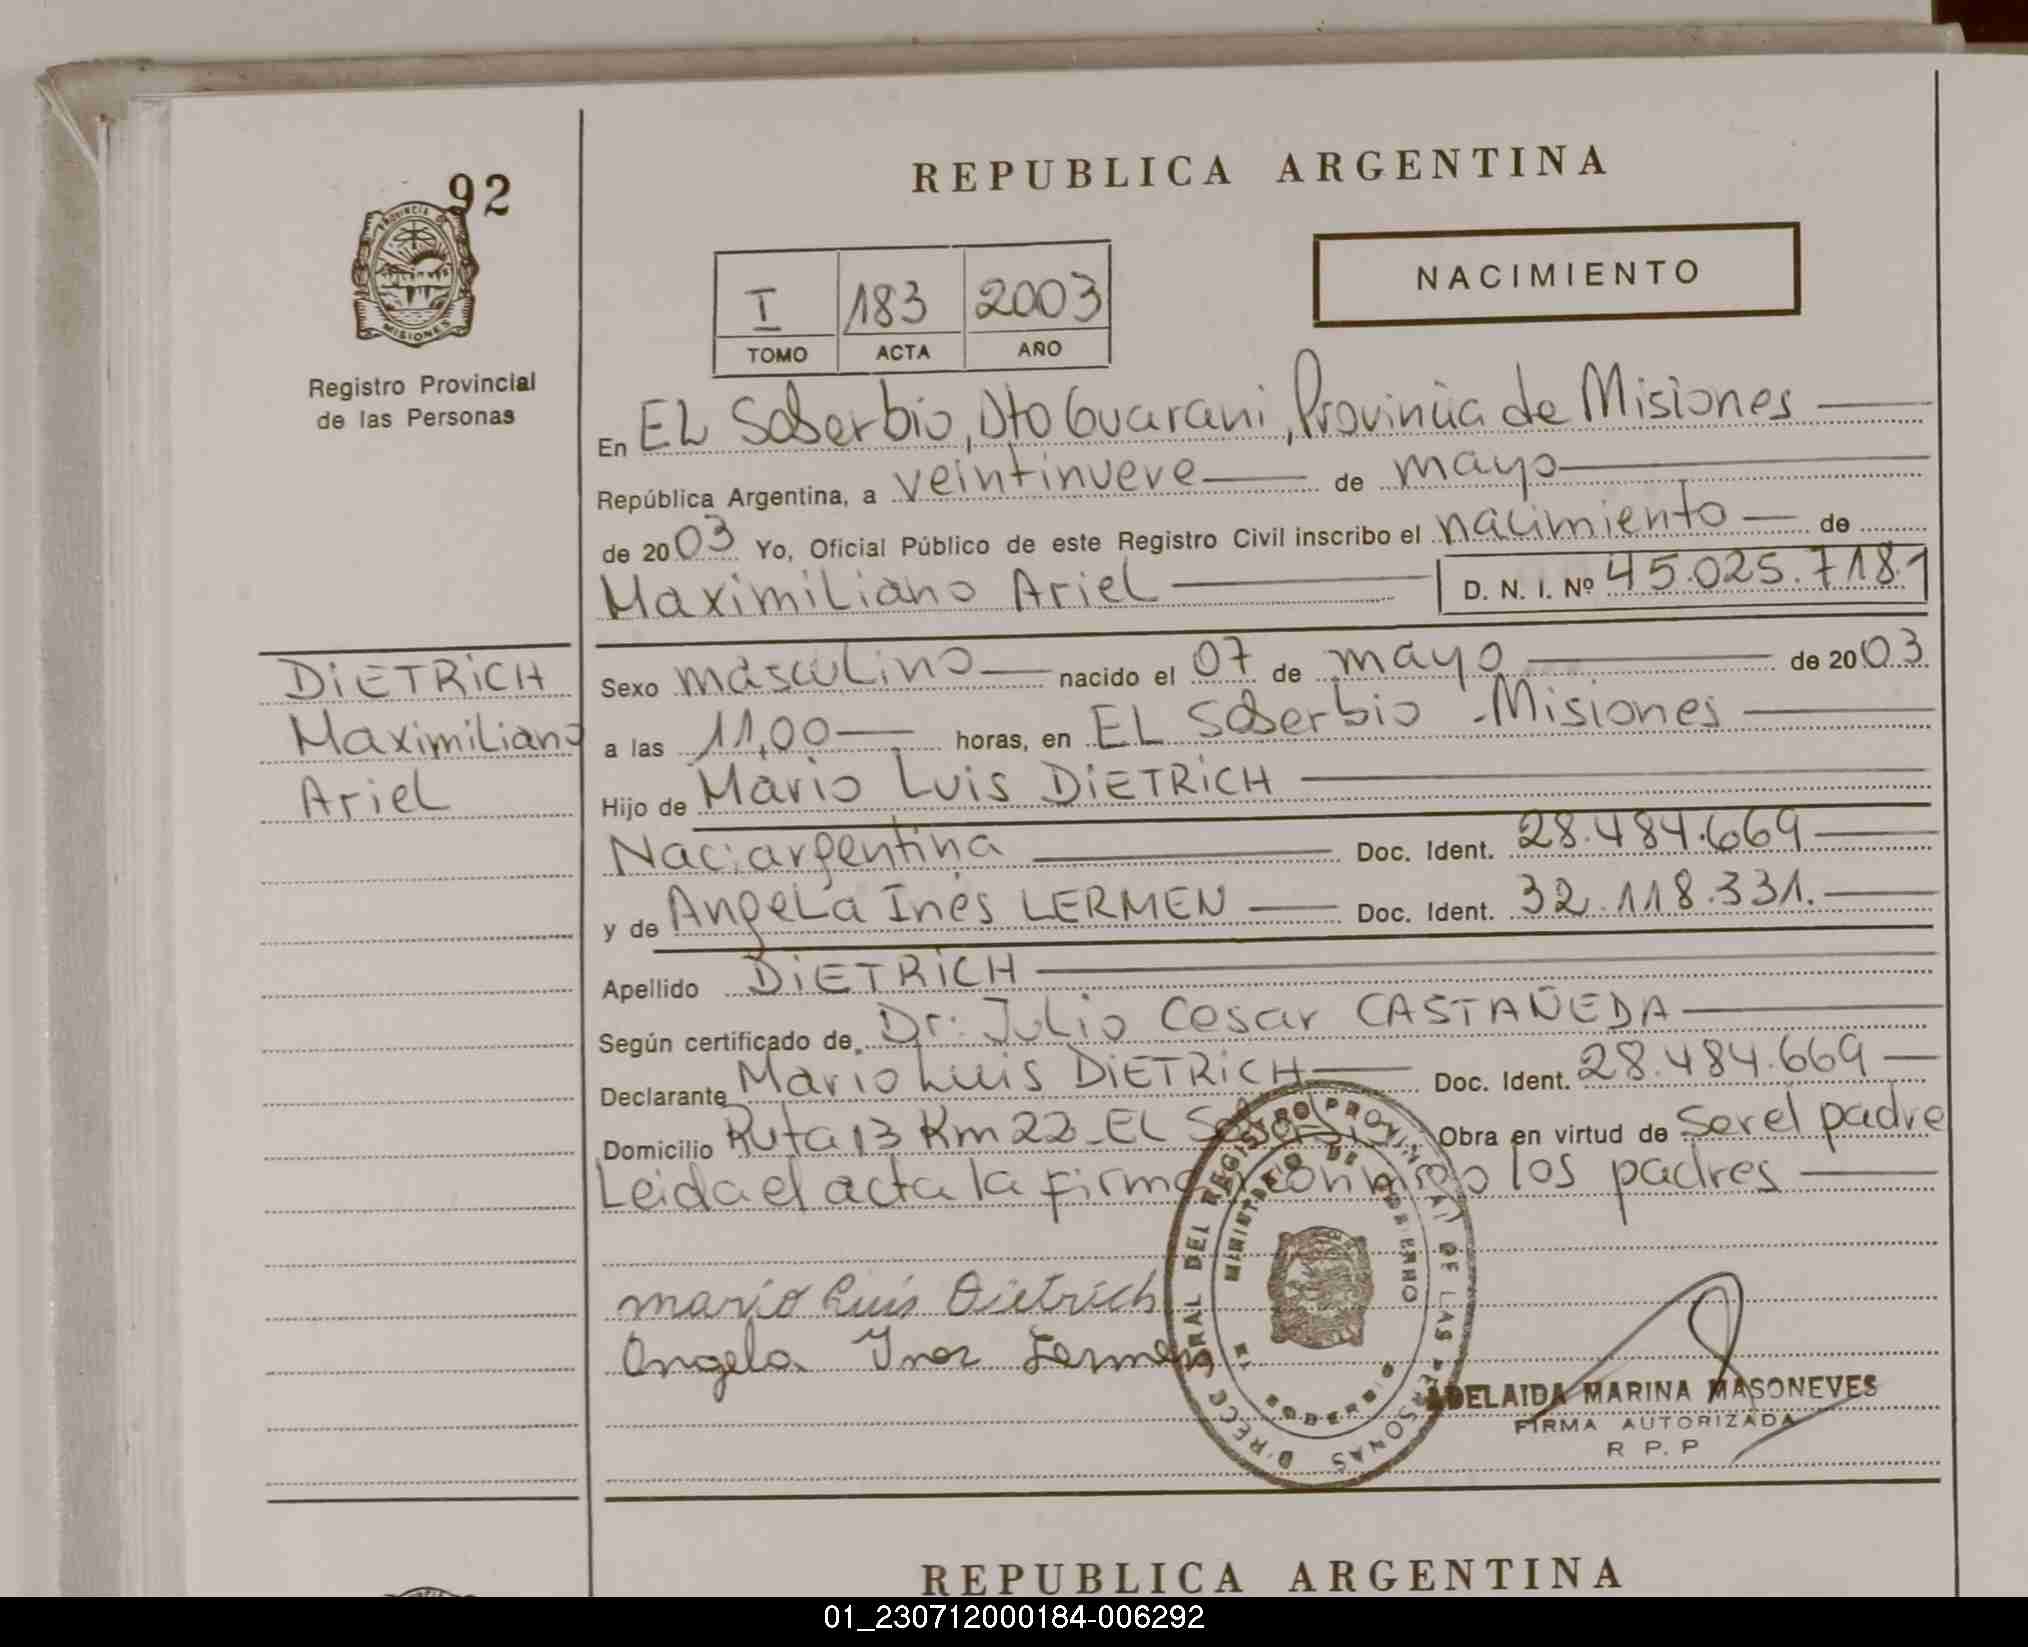 92
PROVINCIA DE
MISIONES
Registro Provincial
de las Personas
REPUBLICA ARGENTINA
NACIMIENTO
I 183 2003
TOMO ACTA AÑO
En EL Soberbio, Dto Guarani, Provincia de Misiones
República Argentina, a veintinueve de mayo
de 2003 Yo, Oficial Público de este Registro Civil inscribo el nacimiento de
Maximiliano Ariel D. N. I. Nº 45.025.718.
DiETRiCH
Maximiliano
Ariel
Sexo masculino nacido el 07 de mayo de 2003
a las 11,00 horas, en EL Soberbio - Misiones
Hijo de Mario Luis DiETRiCH
Nac: argentina Doc. Ident. 28.484.669
y de Angela Inés LERMEN Doc. Ident. 32.118.331.
Apellido DiETRiCH
Según certificado de Dr: Julio Cesar CASTAÑEDA
Declarante Mario Luis DiETRiCH Doc. Ident. 28.484.669
Domicilio Ruta 13 Km 22 - EL Soberbio Obra en virtud de ser el padre
Leida el acta la firman conmigo los padres
mario Luis Dietrich
Angela Ines Lermen
DIRECC GRAL DEL REGISTRO PROVINCIAL DE LAS PERSONAS
MINISTERIO DE GOBIERNO
EL SOBERBIO
ADELAIDA MARINA MASONEVES
FIRMA AUTORIZADA
R P. P
REPUBLICA ARGENTINA
01_230712000184-006292